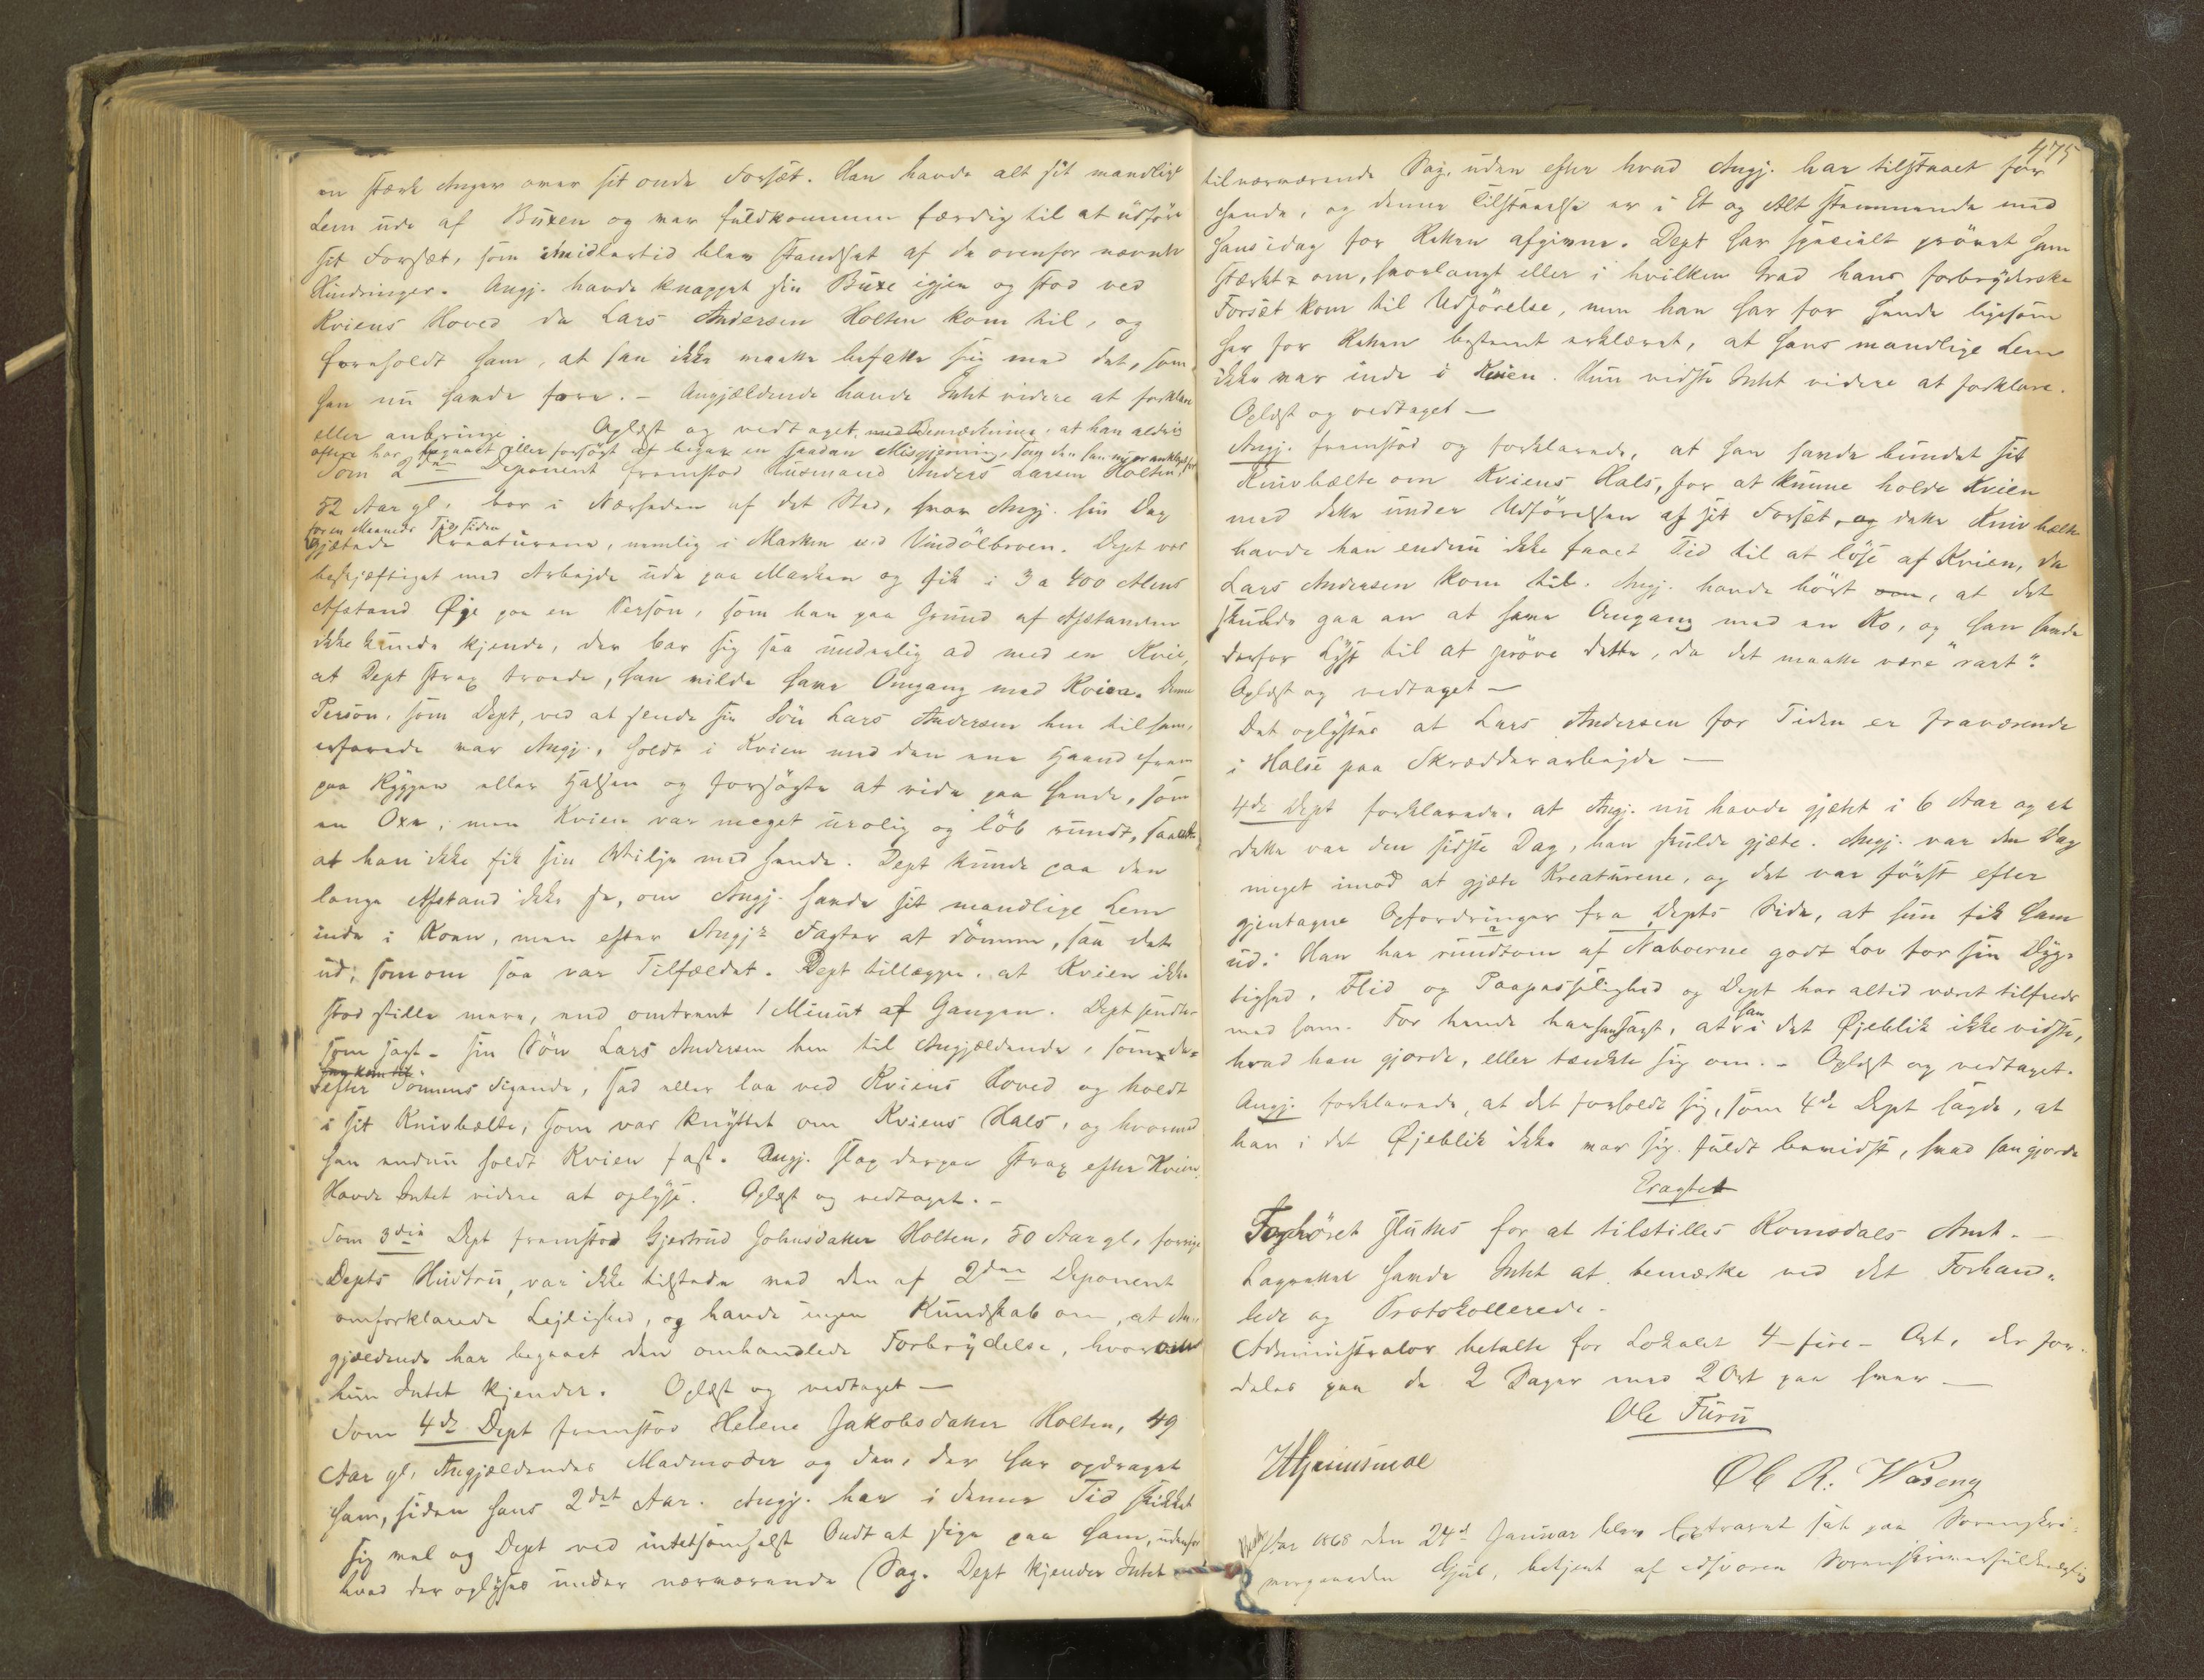 en stærk Anger over sit onde Forsæt. Han havde alt sit mandlige
Lem ude af Buxen og var fuldkommen færdig til at udføre
sit Forsæt, som imidlertid blev standset af de ovenfor nævnte
Hindringer. Angj. havde knappet sin Buxe igjen og stod ved
Kviens Hoved da Lars Andersen Holten kom til, og
foreholdt ham, at han ikke maatte befatte sig med det, som
han nu havde fore. - Angjældende havde Intet videre at forklare
eller anbringe. Oplæst og vedtaget, med Bemærkning, at han aldrig
oftere har begaaet eller forsøgt at begaae en saadan Misgjerning, som den han nu er anklaget for
Som 2den Deponent fremstod Husmand Anders Larsen Holten,
52 Aar gl, bor i Nærheden af det Sted, hvor Angj. hin Dag
for en Maaneds Tid siden
gjætede Kreaturene, nemlig i Marken ved Vindölbroen. Dept var
beskjæftiget med Arbejde ude paa Marken og fik i 3 a 400 Alens
Afstand Øje paa en Person, som han paa Grund af Afstanden
ikke kunde kjende, der bar sig saa underlig ad med en Kvie,
at Dept strax troede, han vilde have Omgang med Kvien. Denne
Person, som Dept, ved at sende sin Søn Lars Andersen hen til ham,
erfarede var Angj., holdt i Kvien med den ene Haand frem
paa Ryggen eller Halsen og forsøgte at ride paa hende, som
en Oxe, men Kvien var meget urolig og løb rundt, saaledes
at han ikke fik sin Vilje med hende. Dept kunde paa den
lange Afstand ikke se, om Angj. havde sit mandlige Lem
inde i Koen, men efter Angjs Fagter at dömme, saa det
ud, som om saa var Tilfældet. Dept tillægger, at Kvien ikke
stod stille mere, end omtrent 1 Minut af Gangen. Dept sendte
som sagt - sin Søn Lars Andersen hen til Angjældende, som, da
han kom til
efter Sönnens Sigende, stod eller laa ved Kviens Hoved og holdt
i sit Knivbælte, som var knyttet om Kviens Hals, og hvormed
han endnu holdt Kvien fast. Angj. slap derpaa strax efter Kvien.
Havde Intet videre at oplyse. Oplæst og vedtaget. -
Som 3die Dept fremstod Gjertrud Johnsdatter Holten, 50 Aar gl, forrige
Depts Hustru, var ikke tilstede ved den af 2den Deponent
omforklarede Lejlighed, og havde ingen Kundskab om, at An-
gjældende har begaaet den omhandlede Forbrydelse, hvorom
hun Intet kjender. Oplæst og vedtaget -
Som 4de Dept fremstod Helene Jakobsdatter Holten, 49
Aar gl, Angjældendes Madmoder og den, der har opdraget
ham, siden hans 2det Aar. Angj. har i denne Tid skikket
sig vel og Dept ved intetsomhelst Ondt at sige paa ham, udenfor
hvad der oplyses under nærværende Sag. Dept kjender Intet
475
til nærværende Sag, uden efter hvad Angj. har tilstaaet for
hende, og denne Tilstaaelse er i Et og Alt stemmende med
hans idag for Retten afgivne. Dept har specielt prövet ham
stærkt om, hvorlangt eller i hvilken Grad hans forbryderske
Forsæt kom til Udførelse, men han har for hende ligesom
her for Retten bestemt erklæret, at hans mandlige Lem
ikke var inde i Kvien. Hun vidste Intet videre at forklare.
Oplæst og vedtaget -
Angj. fremstod og forklarede, at han havde bundet sit
Knivbælte om Kviens Hals, for at kunne holde Kvien
med dette under Udførelsen af sit Forsæt, og dette Knivbælte
havde han endnu ikke faaet Tid til at löse af Kvien, da
Lars Andersen kom til. Angj. havde hört om, at det
skulde gaa an at have Omgang med en Ko, og han havde
derfor Lyst til at pröve dette, da det maatte være "rart".
Oplæst og vedtaget -
Det oplystes at Lars Andersen for Tiden er fraværende
i Halse paa Skrædderarbejde -
4de Dept forklarede, at Angj. nu havde gjætet i 6 Aar og at
dette var den sidste Dag, han skulde gjæte. Angj. var den Dag
meget imod at gjæte Kreaturene, og det var först efter
gjentagne Opfordringer fra Depts Side, at hun fik ham
ud. Han har rundtom af Naboerne godt Lov for sin Dyg-
tighed, Flid og Paapasselighed og Dept har altid været tilfreds
med ham. For hende har han sagt, at han i det Øjeblik ikke vidste,
hvad han gjorde, eller tænkte sig om. - Oplæst og vedtaget.
Angj. forklarede, at det forholdt sig, som 4de Dept sagde, at
han i det Øjeblik ikke var sig fuldt bevidst, hvad han gjorde
Eragtet
Forhöret sluttes for at tilstilles Romsdals Amt. -
Lagrettet havde Intet at bemærke ved det Forhand-
lede og Protokollerede.
Administrator betalte for Lokalet 4 - fire - Ort, der for-
deles paa de 2 Dager med 2 Ort paa hver -
Ole Furu
Ole R. Waseng
Aar 1868 den 24de Januar blev Extraret sat paa Sorenskri-
vergaarden Gjül, betjent af edsvoren Sorenskriverfuldmægtig